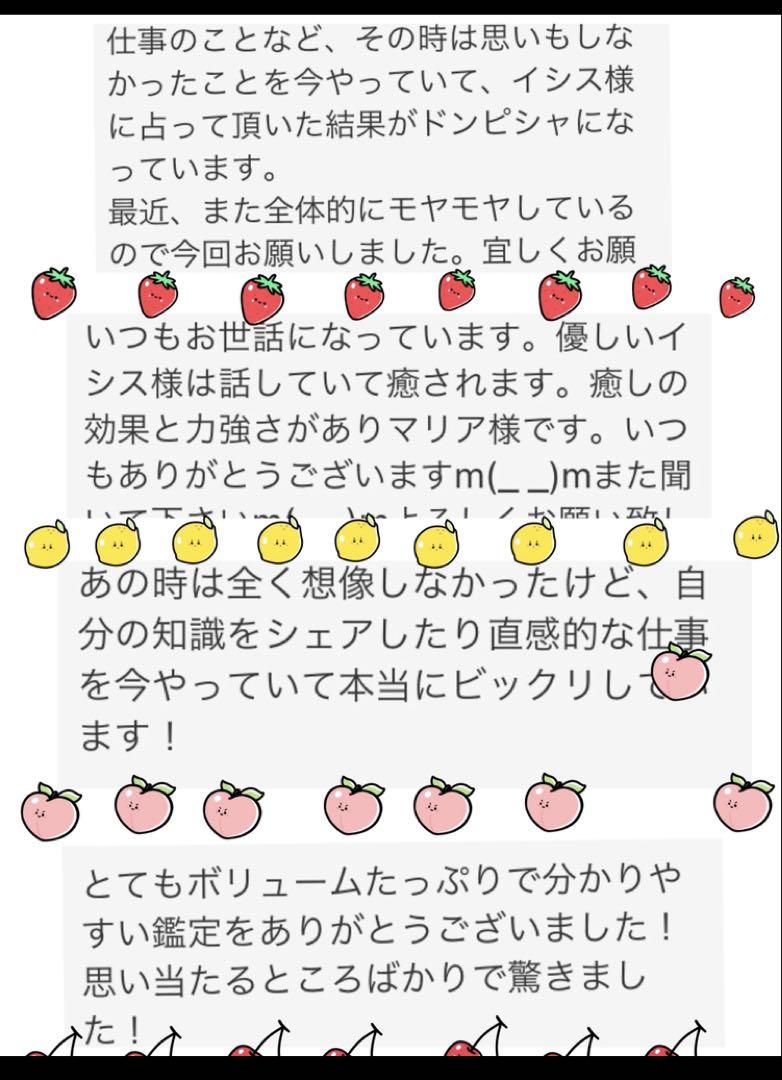 仕事のことなど、その時は思いもしな
かったことを今やっていて、イシス様
に占って頂いた結果がドンピシャにな
っています。
最近、また全体的にモヤモヤしている
ので今回お願いしました。宜しくお願
いつもお世話になっています。優しいイ
シス様は話していて癒されます。癒しの
効果と力強さがありマリア様です。いつ
もありがとうございますm(_ _)mまた聞
あの時は全く想像しなかったけど、自
分の知識をシェアしたり直感的な仕事
を今やっていて本当にビックリして
ます！
とてもボリュームたっぷりで分かりや
すい鑑定をありがとうございました！
思い当たるところばかりで驚きまし
た！